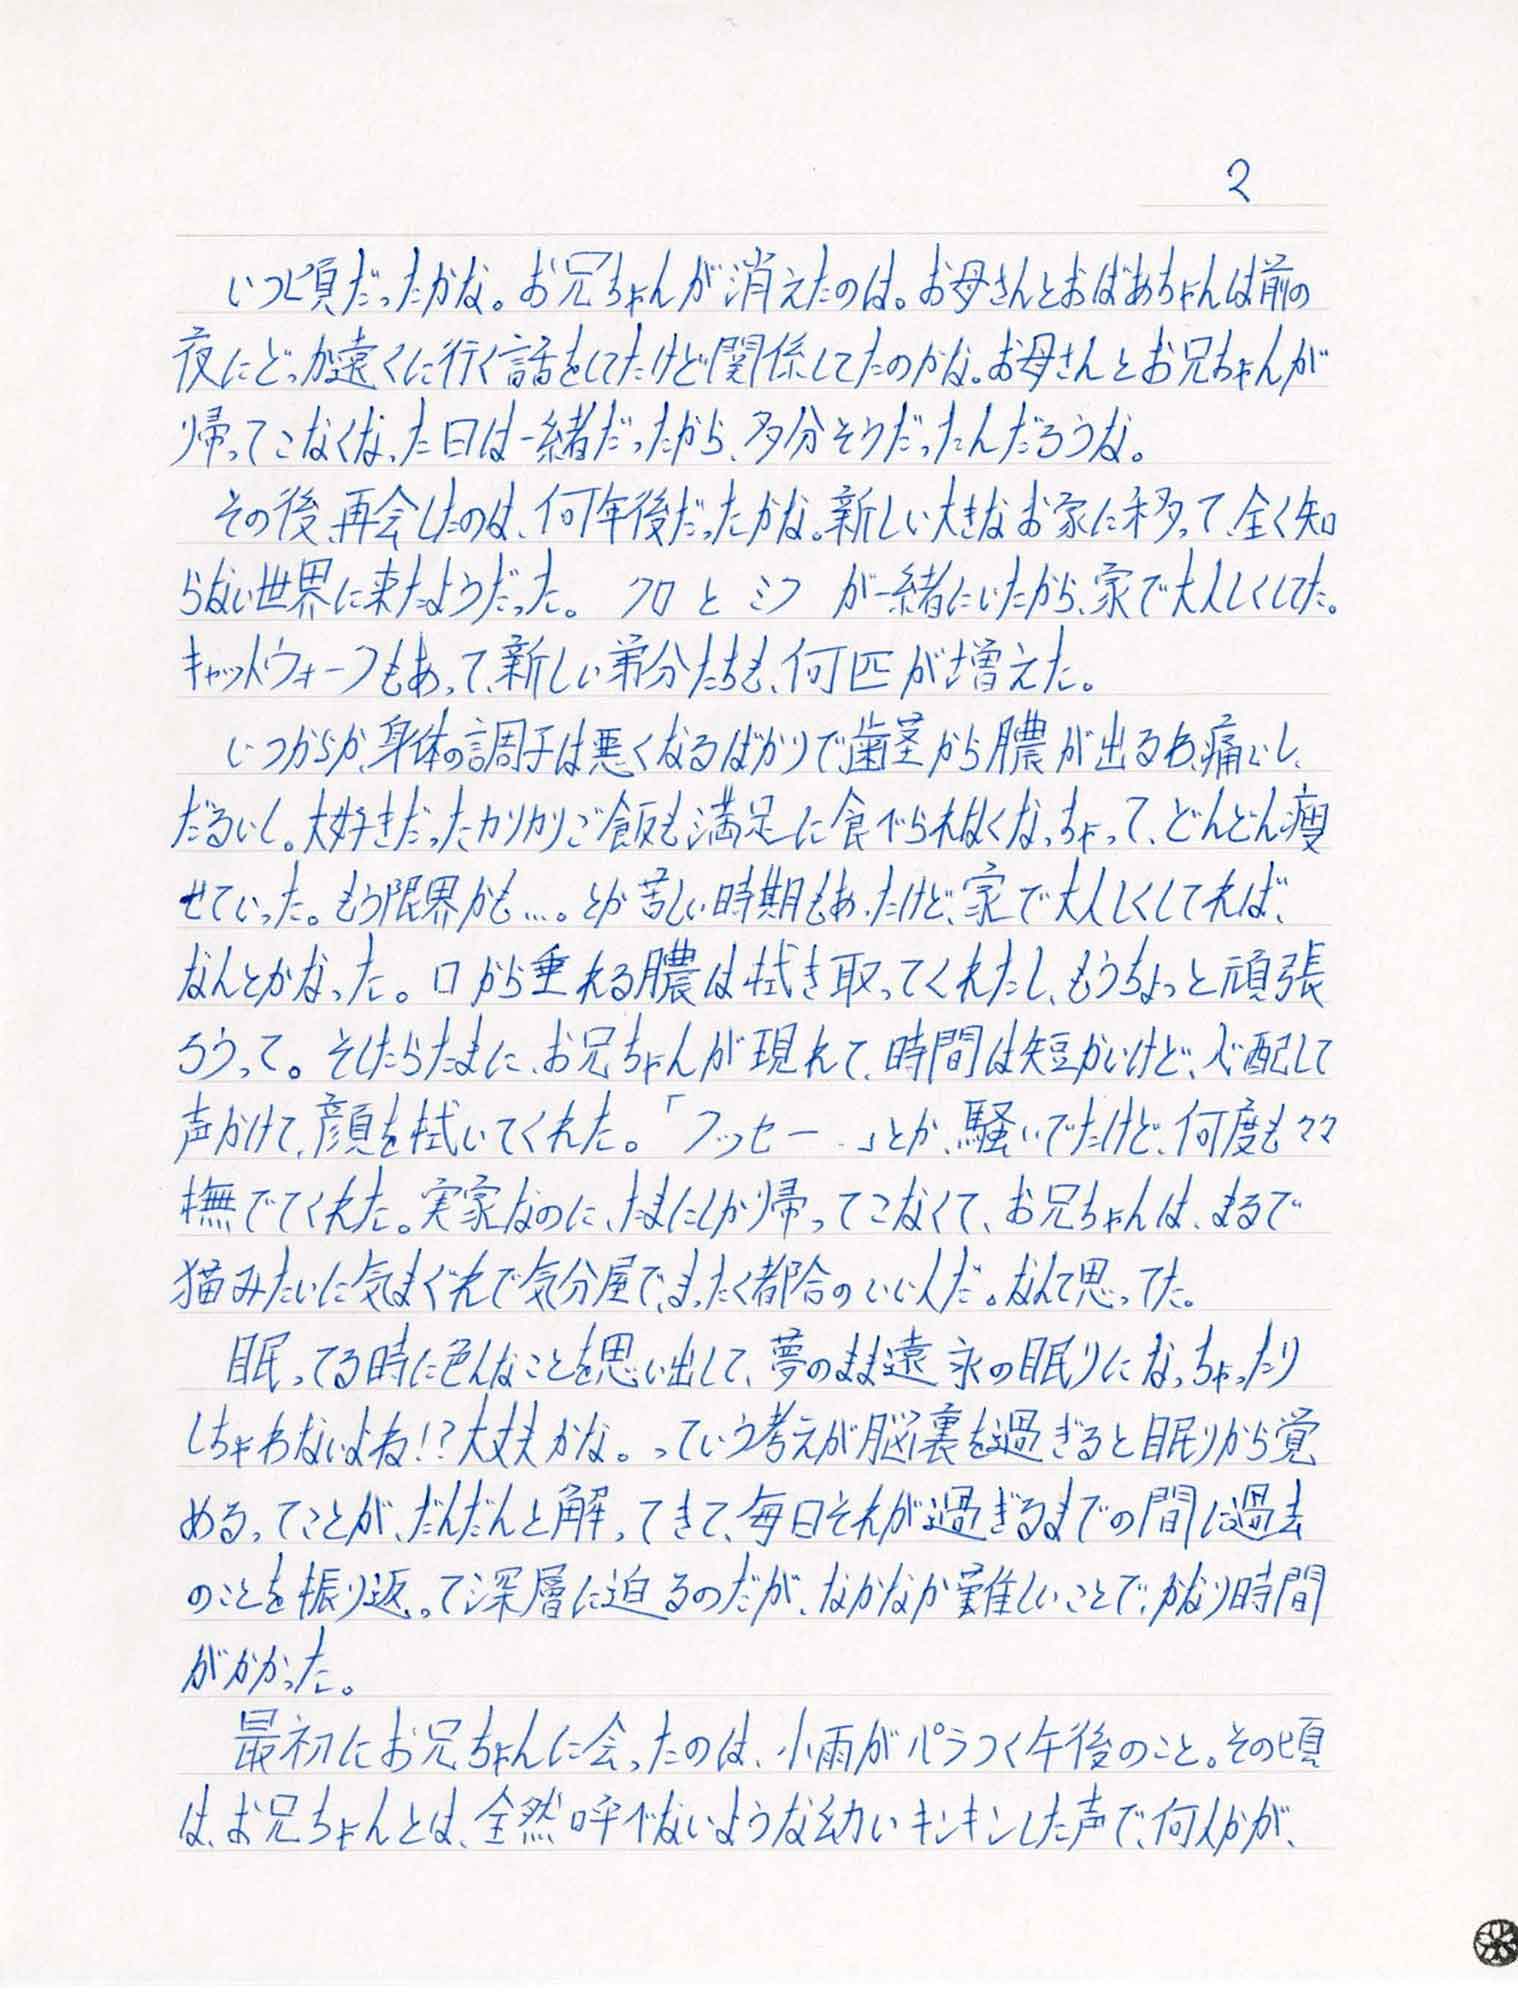 2
いつ頃だったかな。お兄ちゃんが消えたのは。お母さんとおばあちゃんは前の
夜にどっか遠くに行く話をしてたけど関係してたのかな。お母さんとお兄ちゃんが
帰ってこなくなった日は一緒だったから、多分そうだったんだろうな。
その後、再会したのは、何年後だったかな。新しい大きなお家に移って、全く知
らない世界に来たようだった。クロとミフが一緒にいたから、家で大人しくしてた。
キャットウォークもあって、新しい弟分たちも、何匹が増えた。
いつからか、身体の調子は悪くなるばかりで、歯茎から膿が出るわ、痛いし、
だるいし。大好きだったカリカリご飯も満足に食べられなくなっちゃって、どんどん痩
せていった。もう限界かも…。とか苦しい時期もあったけど、家で大人しくしてれば、
なんとかなった。口から垂れる膿は拭き取ってくれたし、もうちょっと頑張
ろうって。そしたらたまに、お兄ちゃんが現れて、時間は短かいけど、心配して
声かけて、顔を拭いてくれた。「フッセー。」とか、騒いでたけど、何度もママ
撫でてくれた。実家なのに、たまにしか帰ってこなくて、お兄ちゃんは、まるで
猫みたいに気まぐれで気分屋で、まったく都合のいい人だ。なんて思ってた。
眠ってる時に色んなことを思い出して、夢のまま遠永の眠りになっちゃったり
しちゃわないよね!?大丈夫かな。っていう考えが脳裏を過ぎると眠りから覚
めるってことが、だんだんと解ってきて、毎日それが過ぎるまでの間に過去
のことを振り返って深層に迫るのだが、なかなか難しいことで、かなり時間
がかかった。
最初にお兄ちゃんに会ったのは、小雨がパラつく午後のこと。その頃
は、お兄ちゃんとは、全然呼べないような幼いキンキンした声で、何人かが、